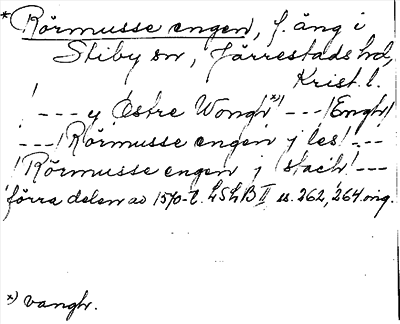 *Rörmusse engen, f. äng i
Stiby sn, Järrestads hd,
Krist. l.
/---- y Östre Wongh*)/ ---/Engh/
---/Rörmusse engen j les/---
/Rörmusse engen j stach/---
förra delen av 1570-t. LSLB II s. 262, 264 orig.
*) vangh.